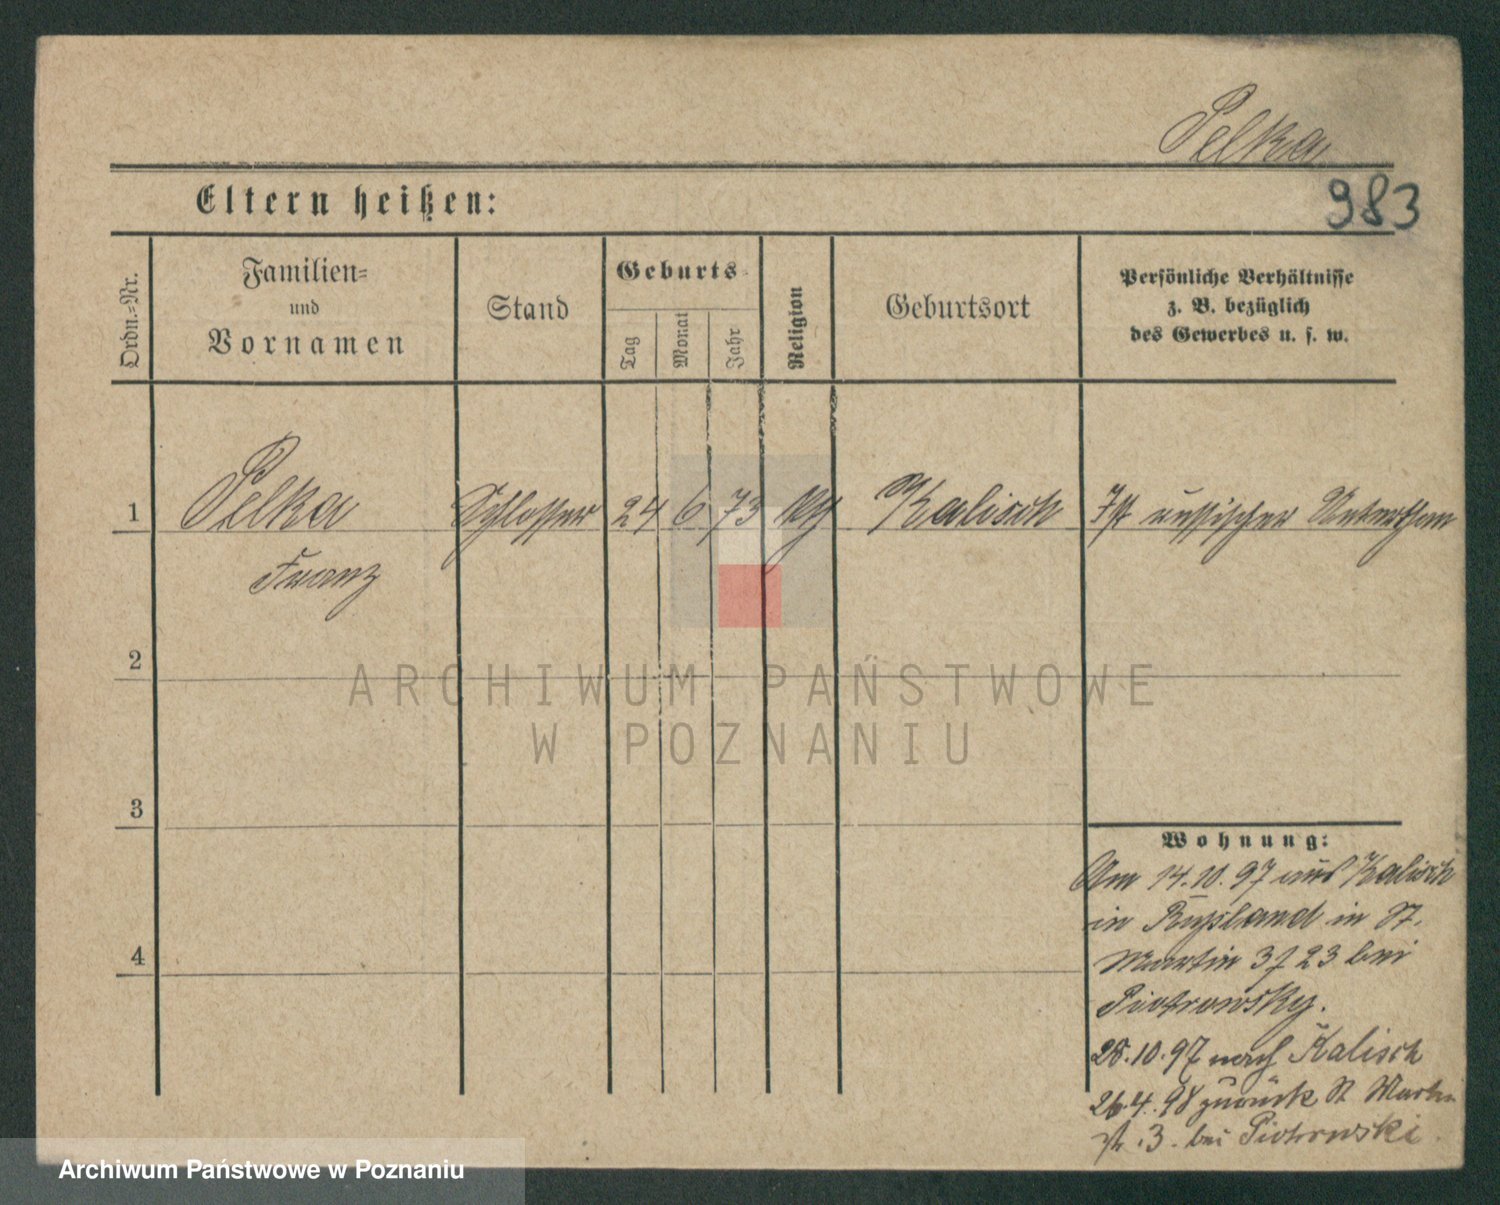 Pelka
983
Eltern heißen:
Ordn.-Nr.
Familien-
und
Vornamen
Stand
Geburts-
Tag
Monat
Jahr
Religion
Geburtsort
Persönliche Verhältnisse
z. B. bezüglich
des Gewerbes u. s. w.
1 Pelka Schlosser 24 6 73 Kalisch Ist russischer Unterthan
Franz
2
ARCHIWUM PAŃSTWOWE
W POZNANIU
3
Wohnung:
Am 14.10.97 aus Kalisch
in Russland in St.
Martin 23 bei
Piotrowsky.
28.10.97 nach Kalisch
26.4.98 zurück St Martin
str. 3. bei Piotrowski.
4
Archiwum Państwowe w Poznaniu